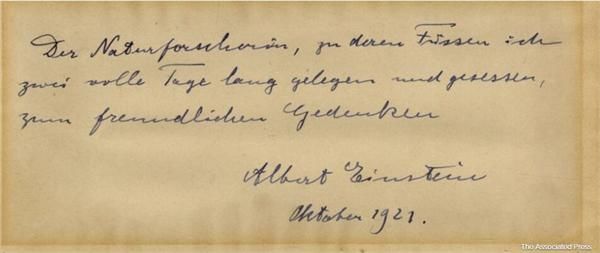 Der Naturforscherin, zu deren Füssen ich
zwei volle Tage lang gelegen und gesessen,
zum freundlichen Gedenken
Albert Einstein
Oktober 1921.
The Associated Press